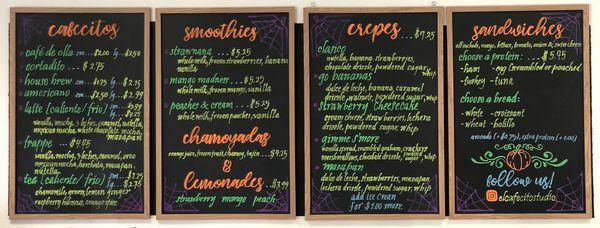 cafecitos
café de olla sm...$2.00 lg...$2.50
cortadito ... $2.75
house brew sm...$1.75 lg...$2.15
americano sm...$2.50 lg...$2.99
latte (caliente/frio) sm
lg
mazapan
frappe ... $4.75
tea (caliente/frio) sm
lg...$2.75
chamomile, green, lemon ginger
raspberry hibiscus, orange spice
smoothies
strawnana .... $5.25
whole milk, frozen strawberries, banana
vanilla
mango madness ... $5.25
whole milk, frozen mango, vanilla
peaches & cream ... $5.25
whole milk, frozen peaches, vanilla
chamoyadas
orange juice, frozen fruit, chamoy, tajin ... $4.25
&
lemonades...$3.99
strawberry mango peach
crepes...$7.25
clasico
nutella, banana, strawberries,
chocolate drizzle, powdered sugar, whip
go bananas
dulce de leche, banana, caramel
drizzle, walnuts, powdered sugar, whip
strawberry cheesecake
cream cheese, strawberries, lechera
drizzle, powdered sugar, whip
gimme s'more
vanilla spread, crumbled graham crackers
marshmallows, chocolate drizzle, powdered sugar, whip
mazapan
dulce de leche, strawberries, mazapan,
lechera drizzle, powdered sugar, whip
add ice cream
for $1.00 more
sandwiches
all include, mayo, lettuce, tomato, onion & swiss cheese
choose a protein:... $5.95
-ham -egg (scrambled or poached)
-turkey -tuna
choose a bread:
-white -croissant
-wheat -bolillo
avocado (+$0.75), extra protein (+1.00)
follow us!
elcafecitostudio